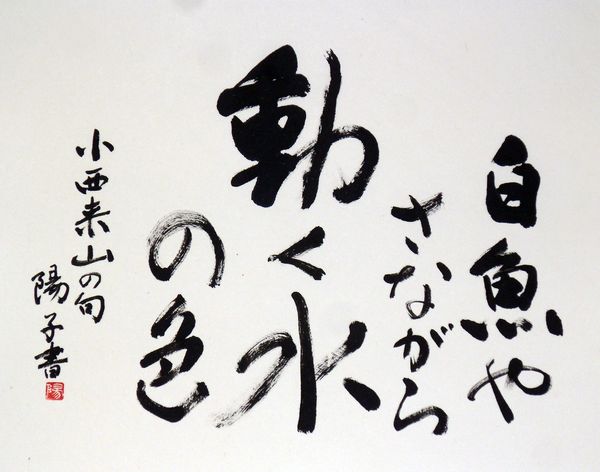 白魚や
さながら
動く水
の色
小西来山の句
陽子書
陽